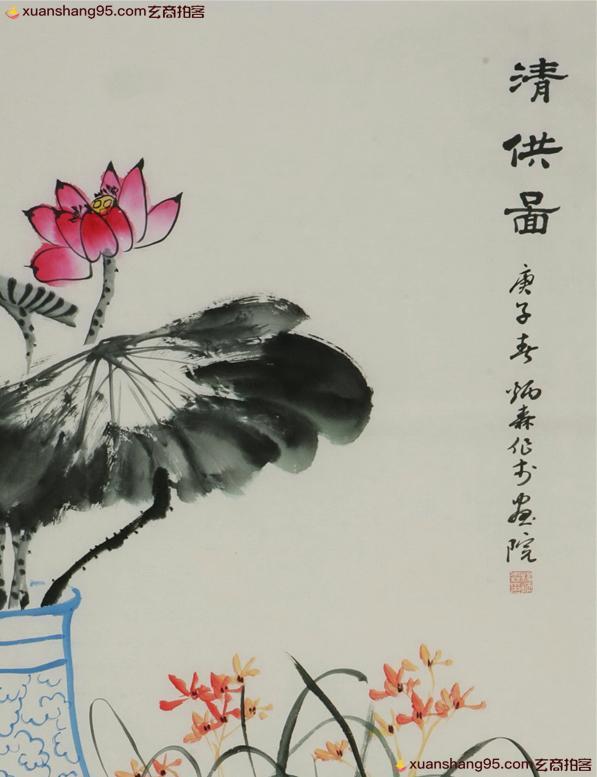 xuanshang95.com玄商拍客
清供图
庚子春炳森作于画院
xuanshang95.com玄商拍客